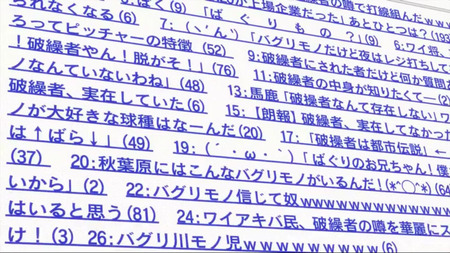 られなくなる(6) 6:ばく(9) 「が上場企業だった」あとひとつは?(193)
7:(、'ん')「バグリモノだけど夜はレジ打ちして
ろってピッチャーの特徴 (52) 「ばぐりもの?」(9) 6:ワイ将、
!破繰者やん!脱がそ!」(76) 9:破繰者にされた者だけど何か質問
ノなんていないわね」(48) 11:破繰者の中身が知りたくて―(2)
破繰者、実在していた(6) 13:馬鹿「破繰者なんて存在しない」ワ
ノが大好きな球種はなーんだ(20) 15:【朗報】破繰者、実在してなかっ
は↑ばら↓」(49) 17:「破繰者は都市伝説」←
(37) 19:(´・ω・`)「ばぐりのお兄ちゃん!僕
20:秋葉原にはこんなバグリモノがいるんだ!(*^◯^*)(64
いから」(2) 22:バグリモノ信じて奴wwwwwwwwwwww
はいると思う(81) 24:ワイアキバ民、破繰者の噂を華麗にス
け!(3) 26:バグリ川モノ児wwwwwwww(6)